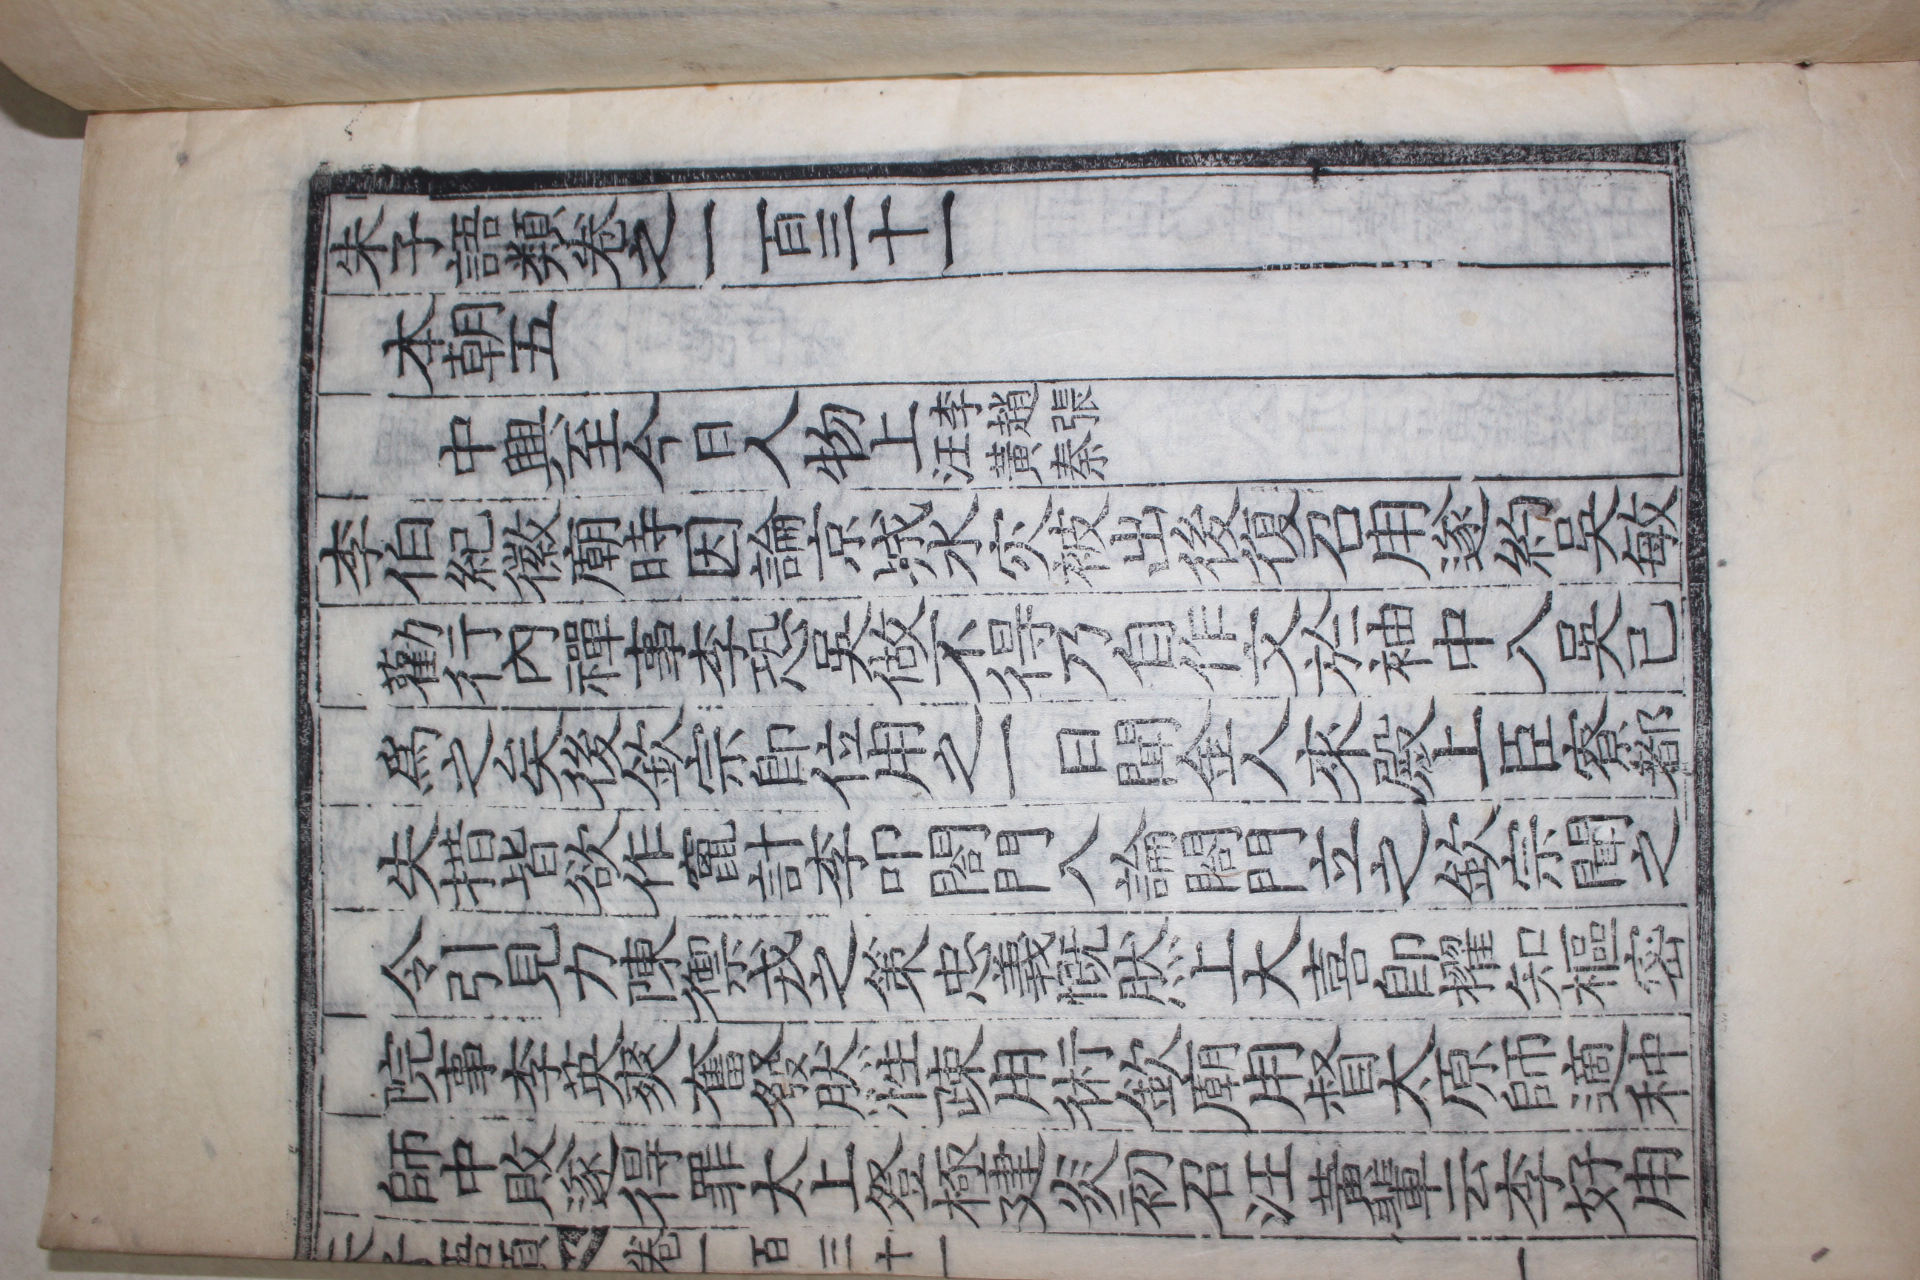 朱子語類卷之一百三十一
本朝五
中興至今日人物上 李趙張
汪黃秦
李伯紀徽廟時因論京城水災被出後復召用遂約吳敏
勸行內禪事李恐吳做不得乃自作文於袖中入吳已
爲之矣後欽宗即位用之一日聞金人來殿上臣寮都
失措皆欲作竄計李叩閤門入論閤門立之欽宗聞之
令引見力陳禦戎之策忠義慨然上大喜即擢知樞密
院事李英爽奮發然性疎用術欽廟用督太原師適种
師中敗遂得罪太上登極建炎初召汪黃輩云李好用
朱子語類 卷一百三十一 一